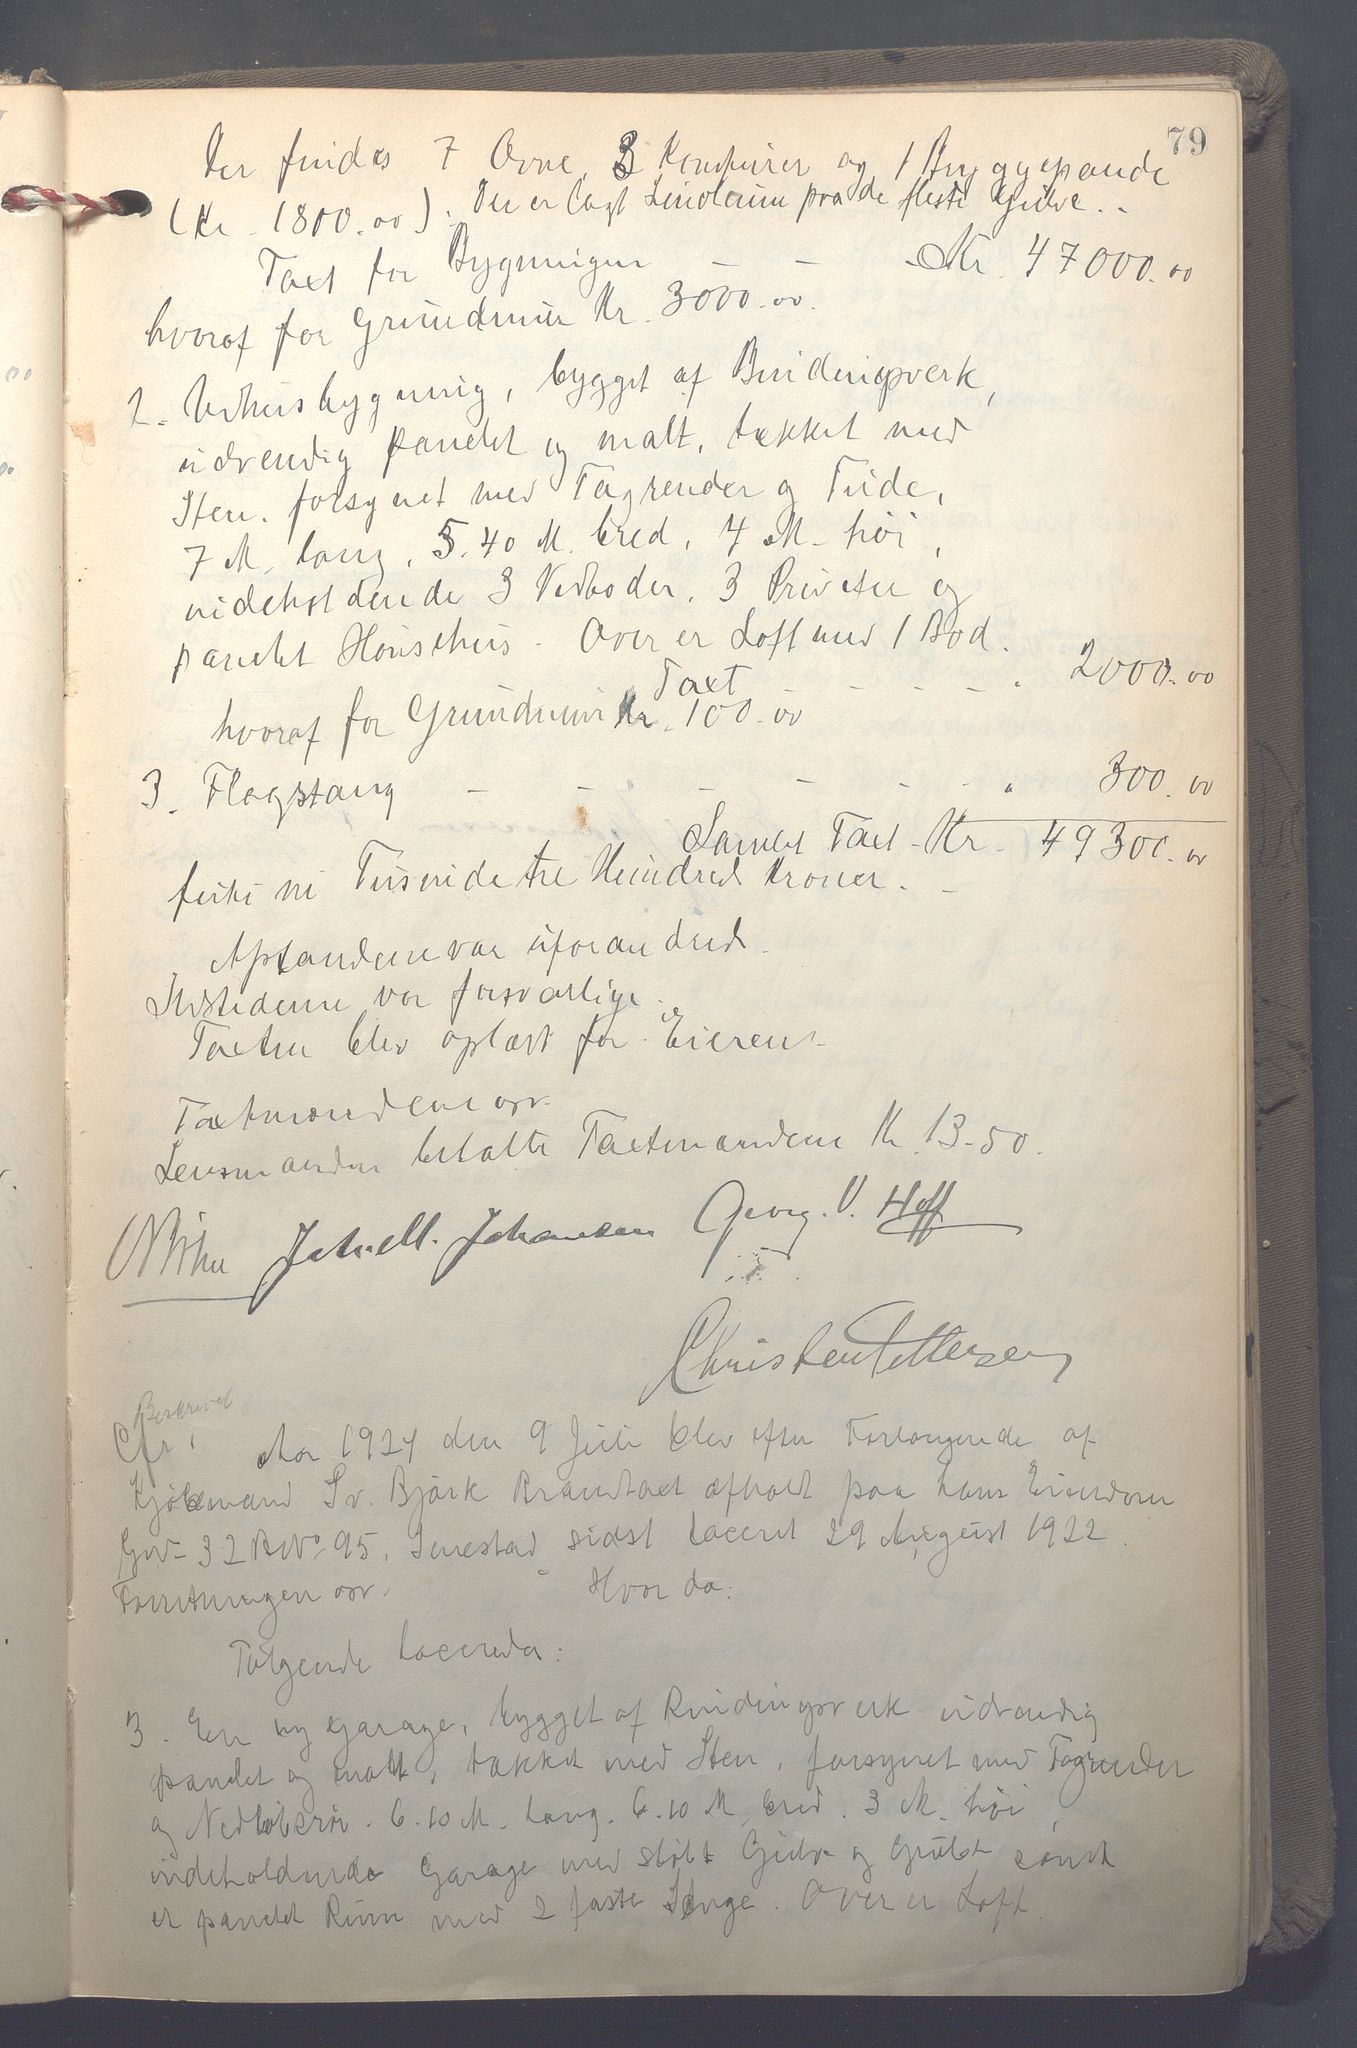 79
Der findes 7 Ovne, 3 Komfurer og 1 Bryggepande
(Kr. 1800.00). Der er lagt Linoleum paa de fleste Gulve. -
Taxt for Bygningen - - Kr. 47000.00
hvoraf for Grundmur Kr. 3000.00.
2. Uthusbygning, bygget af Bindingsverk,
udvendig panelet og malt, tækket med
Sten, forsynet med Tagrender og Tude,
7 M. lang, 5.40 M. bred, 4 M. høi,
indeholdende 3 Vedboder, 3 Priveter og
panelet Hønsehus. Over er Loft med 1 Bod.
Taxt - - - - " 2000.00
hvoraf for Grundmur Kr. 100.00
3. Flagstang - - - - - - " 300.00
Samlet Taxt - Kr. 49300.00
firti ni Tusinde tre Hundred Kroner. -
Afstandene var uforandred.
Ildstederne var forsvarlige.
Taxten blev oplæst for Eieren -
Taxtmændene osv.
Lensmanden betalte Taxtmændene Kr. 13.50.
Joh. M. Johansen Georg. V. Hoff
Christen Pettersen
Beskrevet
Cfr.
Aar 1924 den 9 Juli blev efter Forlangende af
Kjøbmand Sv. Bjørk Branntaxt afholdt paa hans Eiendom
Gno 32 BNo 95, sidst taxeret 29 August 1922.
Forretningen osv. - Hvor da:
Følgende taxeredes:
3. En ny Garage, bygget af Bindingsverk udvendig
panelet og malt, tækket med Sten, forsynet med Tagrender
og Nedløbsrør. 6.10 M. lang. 6.10 M bred. 3 M. høi,
indeholdende Garage med støbt Gulv og samt
et panelet Rum med 2 faste Senge. Over er Loft.